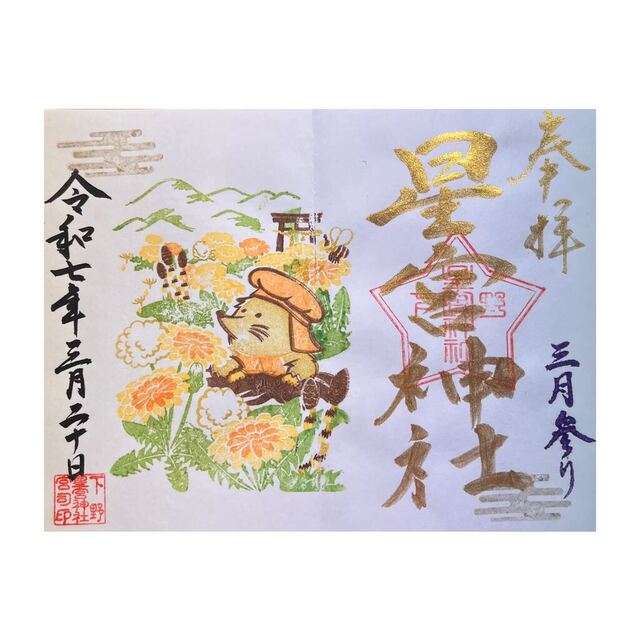 奉拝
星宮神社
三月参り
令和七年三月二十日
下野
星宮神社
宮司印